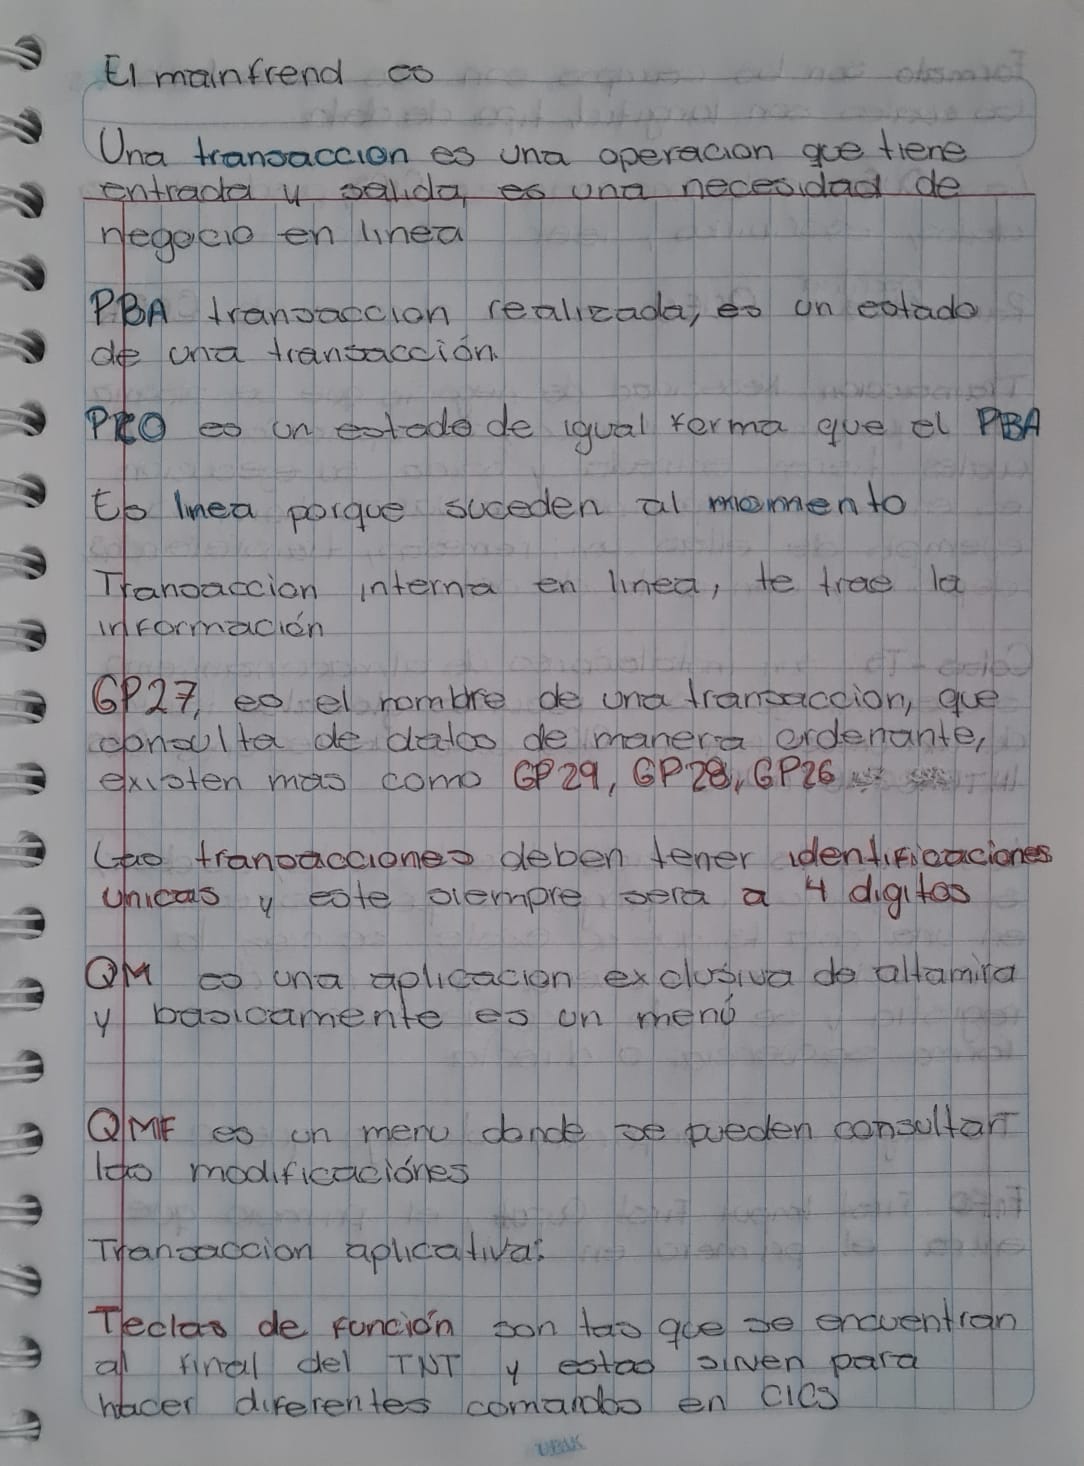 El mainfrend es
Una transaccion es una operacion que tiene
entrada y salida, es una necesidad de
negocio en linea
PBA transaccion realizada, es un estado
de una transacción.
es un estado de igual forma que el PBA
Es linea porque suceden al momento
Transaccion interna en linea, te trae la
información
GP27, es el nombre de una transaccion, que
consulta de datos de manera ordenante,
existen mas como GP29, GP28, GP26
Las transacciones deben tener identificaciones
unicas y este siempre sera a 4 digitos
QM es una aplicacion exclusiva de altamira
y basicamente es un menú
QMF es un menu donde se pueden consultar
las modificaciónes
Transaccion aplicativa:
Teclas de función son las que se encuentran
al final del TNT y estas sirven para
hacer diferentes comandos en CICS